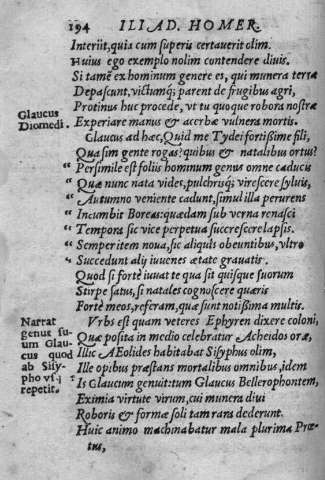 194 ILIAD. HOMER.
Interiit, quia cum superis certauerit olim.
Huius ego exemplo nolim contendere diuis.
Si tamẽ ex hominum genere es, qui munera terræ
Depascunt, victumq; parent de frugibus agri,
Protinus huc procede, vt tu quoque robora nostræ
Glaucus Diomedi.
Experiare manus & acerbæ vulnera mortis.
Glaucus ad hæc, Quid me Tydei fortißime fili,
Qua sim gente rogas? quibus & natalibus ortus?
“ Persimile est foliis hominum genus omne caducis
“ Quæ nunc nata vides, pulchrisq; virescere syluis,
“ Autumno veniente cadunt, simul illa perurens
“ Incumbit Boreas: quædam sub verna renasci
“ Tempora, sic vice perpetua succrescere lapsis.
“ Semper item noua, sic aliquis obeuntibus, vltro
“ Succedunt alij iuuenes ætate grauatis.
Quod si fortè iuuat te qua sit quisque suorum
Stirpe satus, si natales cognoscere quæris
Fortè meos, referam, quæ sunt notißima multis.
Narrat genus suum Glaucus quod ab Sisypho vsq; repetit.
Vrbs est quam veteres Ephyren dixere coloni,
Quæ posita in medio celebratur Acheidos oræ,
Illic Æolides habitabat Sisyphus olim,
Ille opibus præstans mortalibus omnibus, idem
Is Glaucum genuit: tum Glaucus Bellerophontem,
Eximia virtute virum, cui munera diui
Roboris & formæ soli tam rara dederunt.
Huic animo machinabatur mala plurima Præ-
tus,